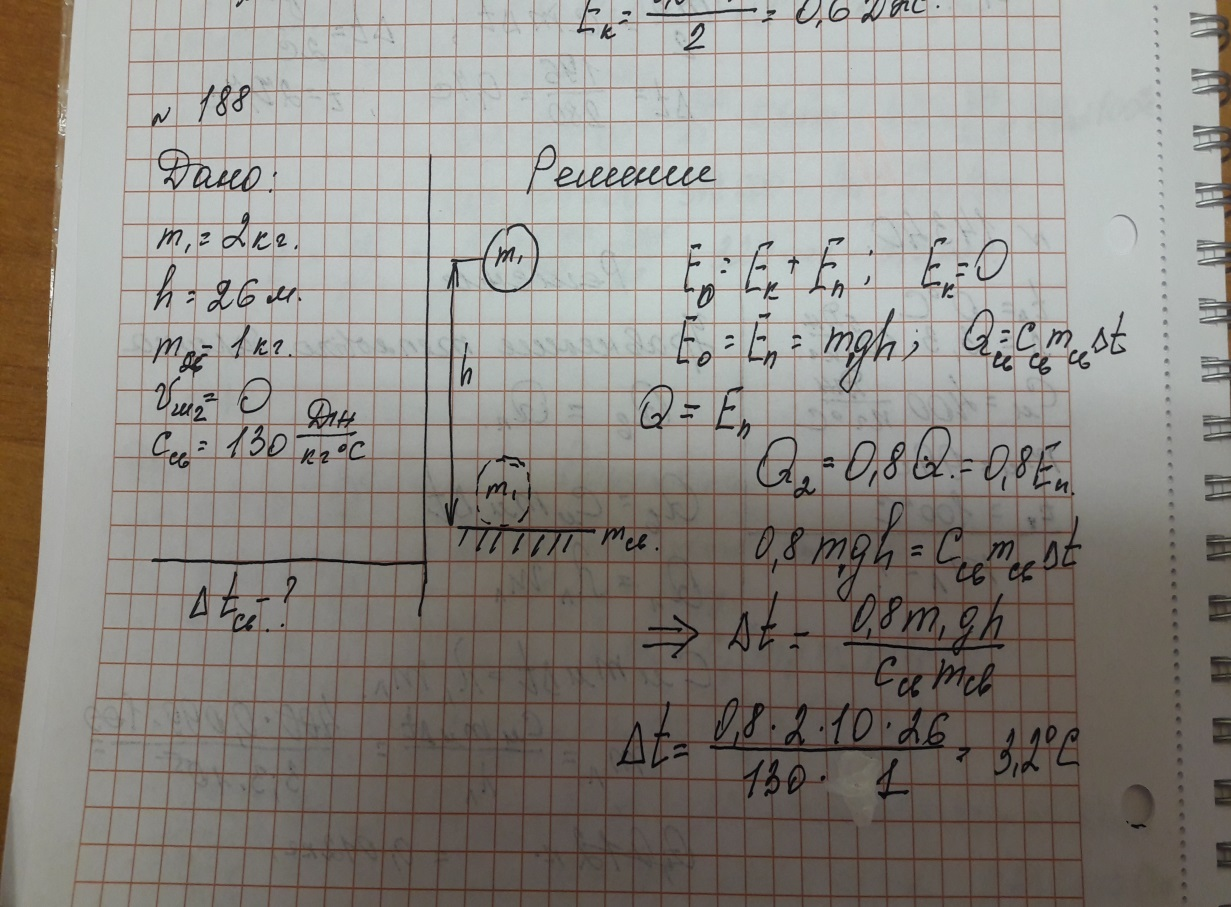 Eк = 2 = 0,6 Дж.
№ 188
Дано:
m₁ = 2 кг.
h = 26 м.
mсв = 1 кг.
Vш₂ = 0
cсв = 130 Дж/кг°С
Δtсв - ?
Решение
m₁
h
m₁
mсв.
E₀ = Eк + Eп ; Eк = 0
E₀ = Eп = m₁gh ; Qсв = cсв mсв Δt
Q = Eп
Q₂ = 0,8 Q = 0,8 Eп.
0,8 m₁gh = Cсв mсв Δt
⇒ Δt = 0,8 m₁ gh / cсв mсв
Δt = 0,8 · 2 · 10 · 26 / 130 · 1 = 3,2°С